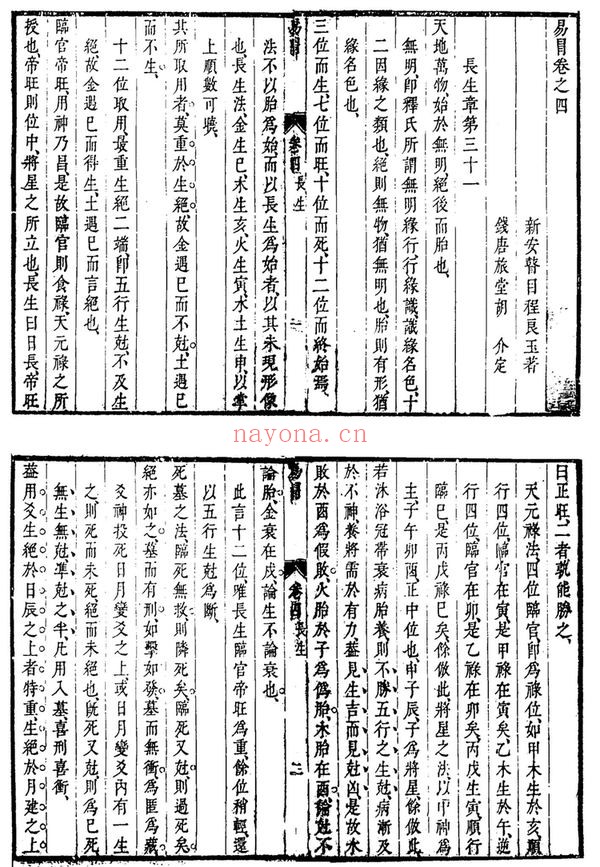 易冒卷之四
新安瞽目程良玉著
錢唐旅堂胡 介定
長生章第三十一
天地萬物始於無明絕後而胎也
無明即釋氏所謂無明緣行行緣識識緣名色十
二因緣之類也絕則無物猶無明也胎則有形猶
緣名色也
三位而生七位而旺十位而死十二位而終始焉
法不以胎為始而以長生為始者以其未現形像
也長生法金生巳木生亥火生寅水土生申以掌
上順數可曉
其所取用者莫重於生絕故金遇巳而不尅土遇巳
而不生
十二位取用最重生絕二端即五行生尅不及生
絕故金遇巳而得生土遇巳而言絕也
臨官帝旺用神乃昌是故臨官則食祿天元祿之所
授也帝旺則位中將星之所立也長生曰日長帝旺
易冒
卷四 長生
一
曰正旺二者孰能勝之
天元祿法四位臨官即為祿位如甲木生於亥順
行四位臨官在寅是甲祿在寅矣乙木生於午逆
行四位臨官在卯是乙祿在卯矣丙戊生寅順行
臨巳是丙戊祿巳矣餘倣此將星之法以甲神為
主子午卯酉正中位也申子辰子為將星餘倣此
若沐浴冠帶衰病胎養則不勝五行之生尅病漸及
於不神養將需於有力墓見生吉而見尅凶是故水
敗於酉為假敗火胎於子為偽胎木胎在酉論尅不
論胎金衰在戌論生不論衰也
此言十二位唯長生臨官帝旺為重餘位稍輕還
以五行生尅為斷
死墓之法臨死無救則降死矣臨死又尅則過死矣
絕亦如之墓而有刑如擊如發墓而無衝為匿為藏
爻神投死日月變爻之上或日月變爻內有一生
之則死而未死絕而未絕也既死又尅則為巳死
無生無尅準尅之半凡用入墓喜刑喜衝
蓋用爻生絕於日辰之上者特重生絕於月建之上
易冒
卷四 長生
二
nayona.cn